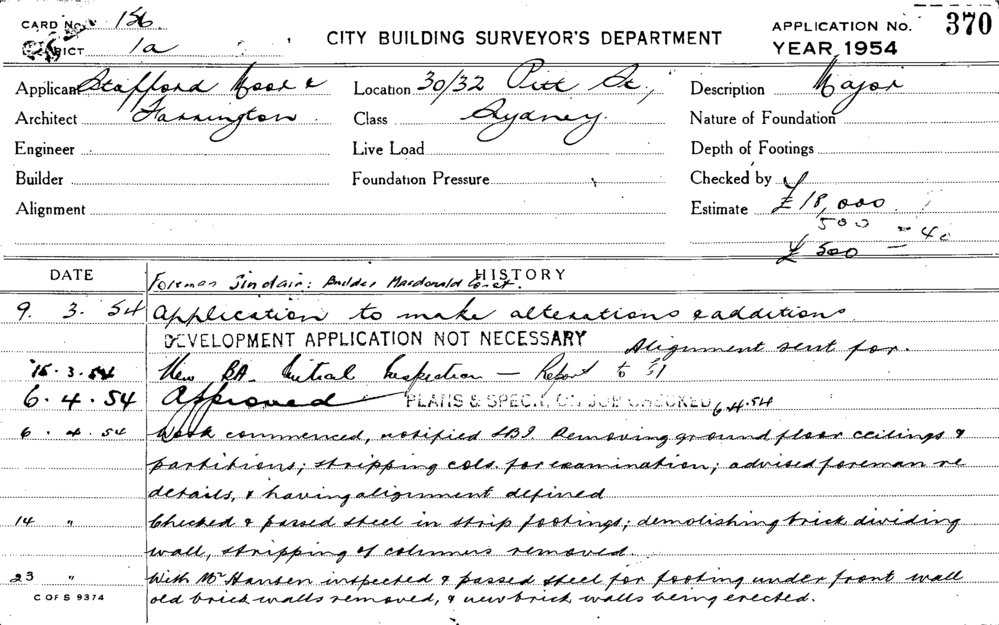 CARD No. 156.
DISTRICT 1a
CITY BUILDING SURVEYOR'S DEPARTMENT
APPLICATION No. 370
YEAR 1954
Applicant Stafford Moor &
Architect Farrington.
Engineer
Builder
Alignment
Location 30/32 Pitt St.,
Class Sydney.
Live Load
Foundation Pressure
Description Major
Nature of Foundation
Depth of Footings
Checked by
Estimate £18,000
500 = 40
£ 500
DATE
HISTORY
Foreman Sinclair: Builder Macdonald Const.
9. 3. 54 Application to make alterations & additions
DEVELOPMENT APPLICATION NOT NECESSARY
Alignment sent for.
15.3.54 New BA. Initial Inspection — Report to
6.4.54 Approved PLANS & SPEC. ON JOB CHECKED 6.4.54
6.4.54 Work commenced, notified SBI. Removing ground floor ceilings &
partitions; stripping cols. for examination; advised foreman re
details, & having alignment defined
14 " Checked & passed steel in strip footings; demolishing brick dividing
wall, stripping of columns removed.
23 " With Mr Hansen inspected & passed steel for footing under front wall
old brick walls removed, & new brick walls being erected.
C OF S 9374